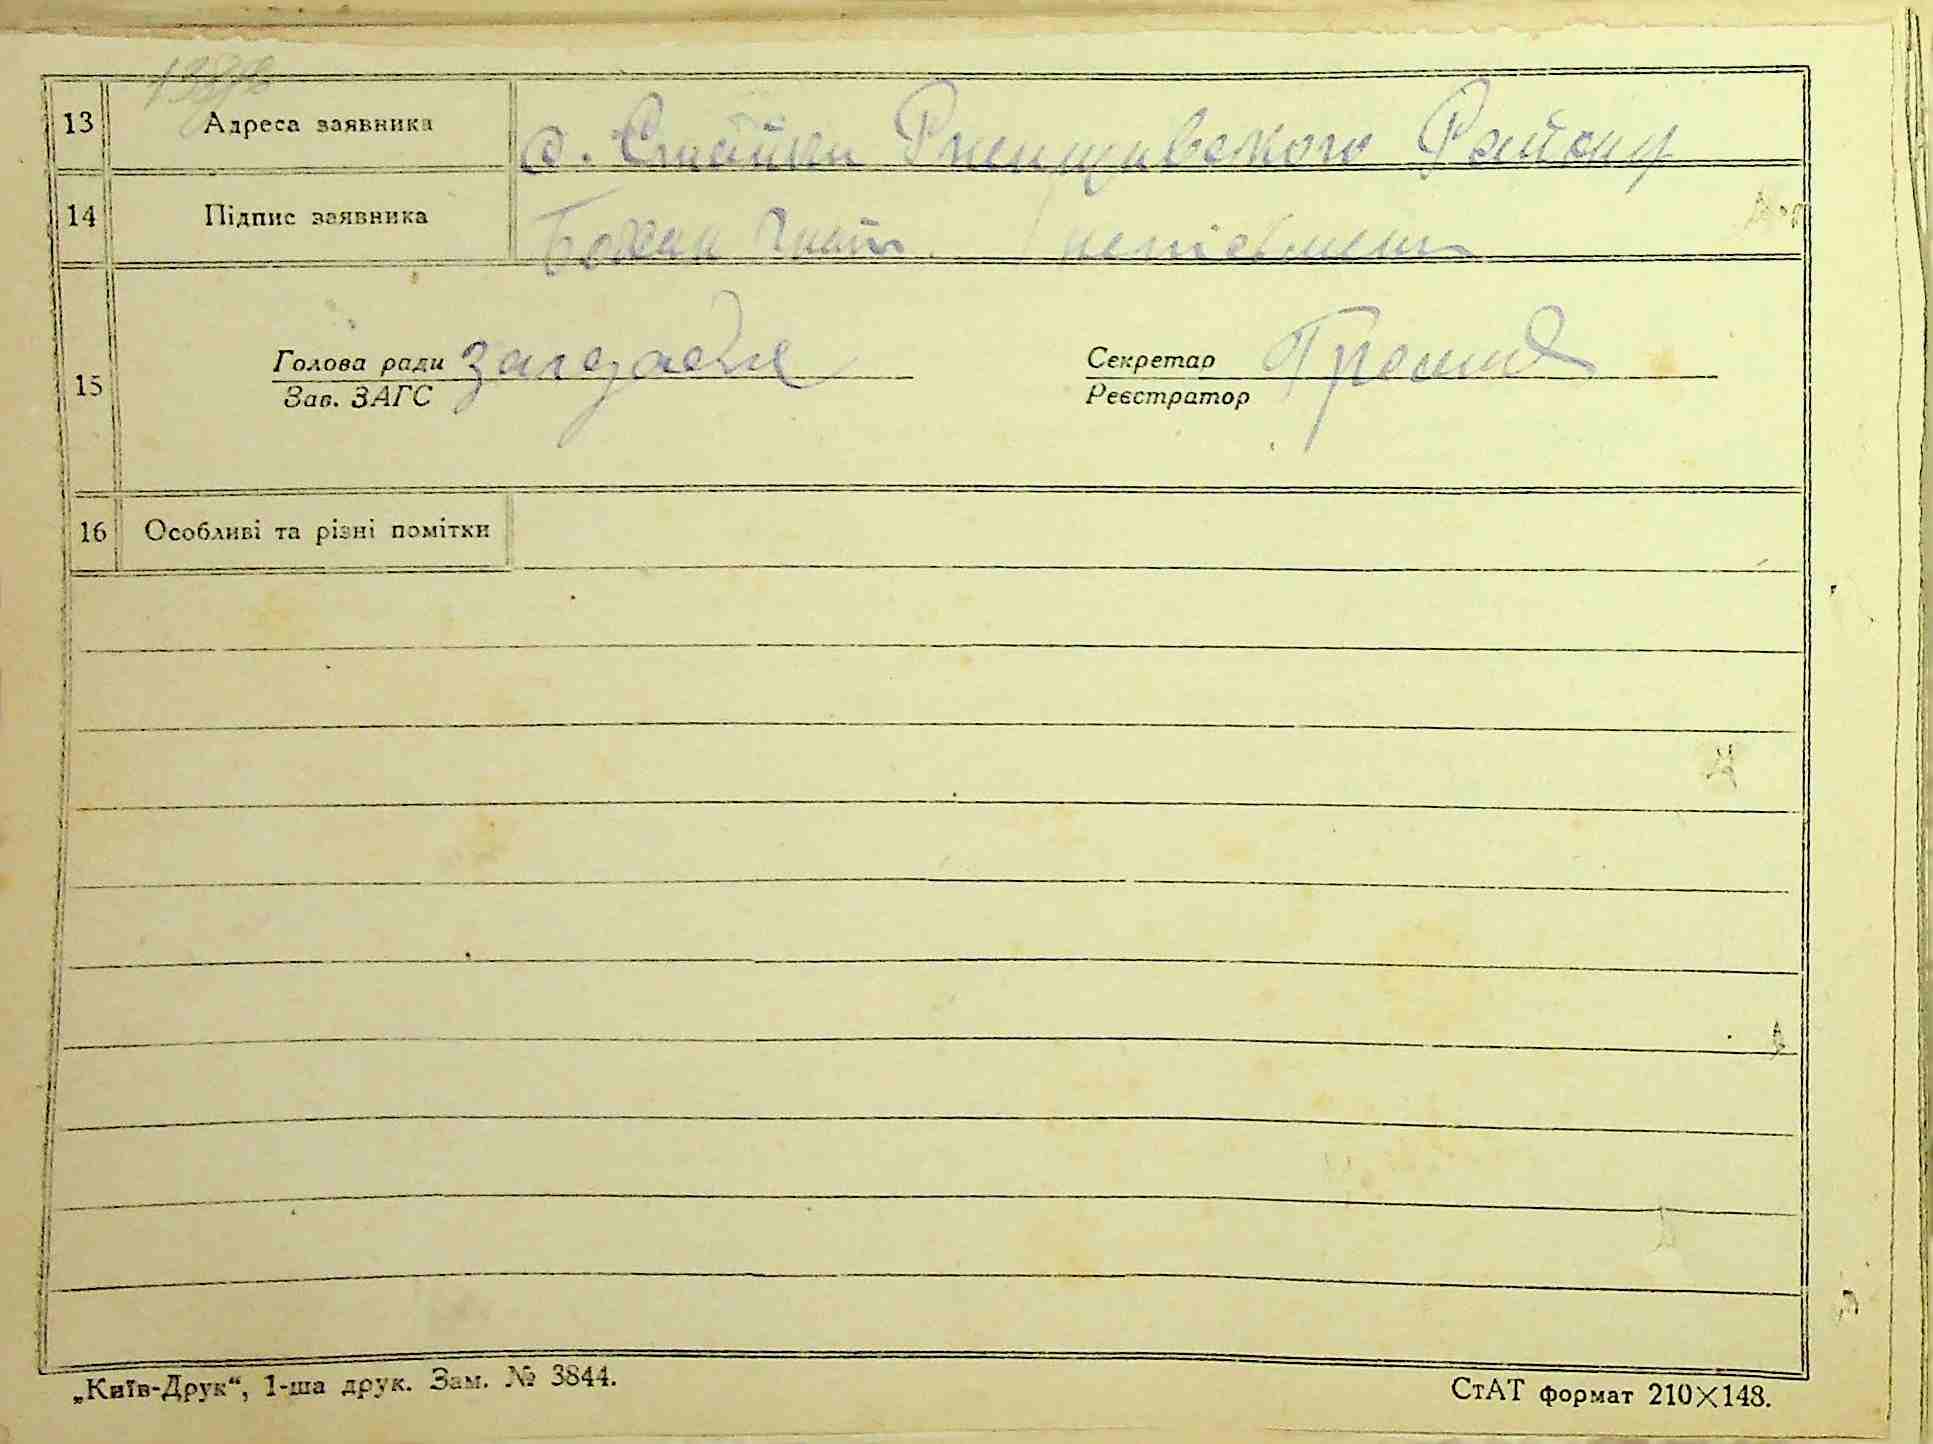 13 Адреса заявника с. Стайки Ржищівського Району
14 Підпис заявника Божак Гнат неписьмен
15 Голова ради Секретар
Зав. ЗАГС Реєстратор
16 Особливі та різні помітки
„Київ-Друк“, 1-ша друк. Зам. № 3844.
СтАТ формат 210×148.